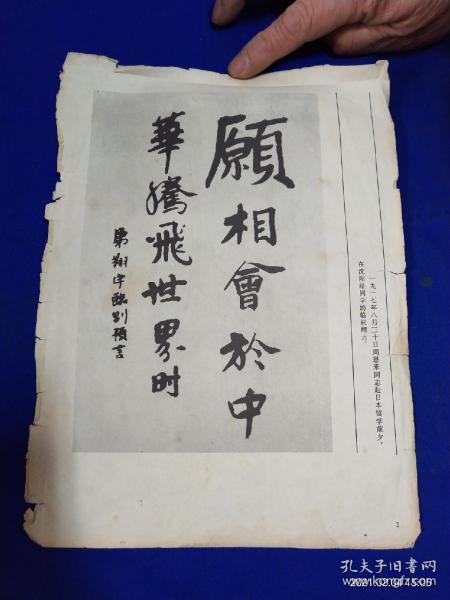 願相會於中
華騰飛世界时
弟翔宇臨別預言
一九一七年八月三十日周恩来同志赴日本留学前夕，
在沈阳给同学的临别赠言。
2
孔夫子旧书网
www.kongfz.com
2021.02.04 15:05